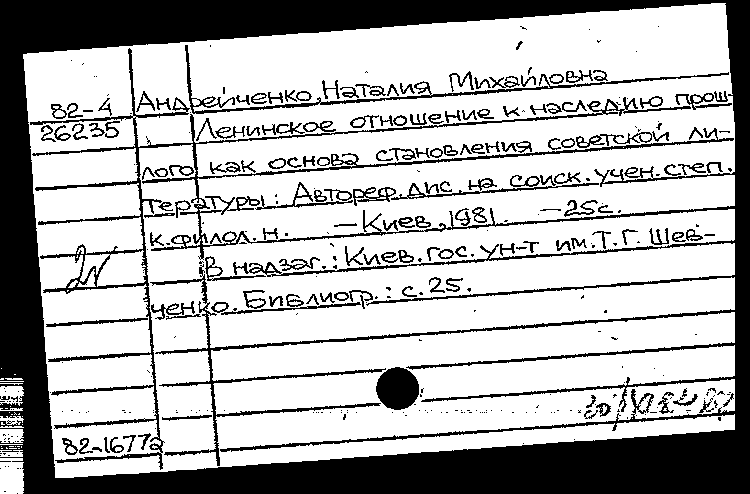 82-4 Андрейченко, Наталия Михайловна
26235 Ленинское отношение к наследию прош-
лого как основа становления советской ли-
тературы: Автореф. дис. на соиск. учен. степ.
к. филол. н. — Киев, 1981. — 25с.
В надзаг.: Киев. гос. ун-т им. Т. Г. Шев-
ченко. Библиогр.: с. 25.
82-16772